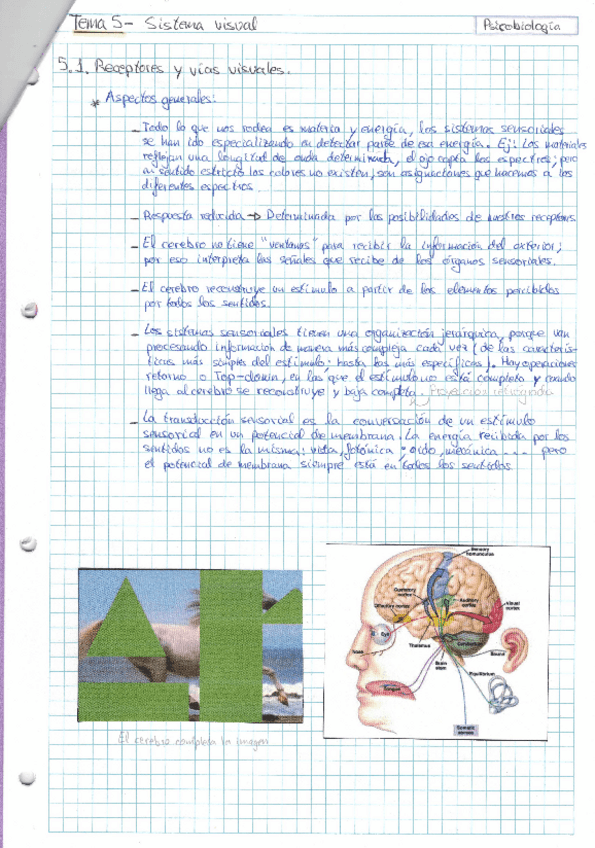 Tema 5- Sistema visual
Psicobiología
5.1. Receptores y vías visuales.
* Aspectos generales:
- Todo lo que nos rodea es materia y energía, los sistemas sensoriales
se han ido especializando en detectar parte de esa energía. Ej: Los materiales
reflejan una longitud de onda determinada, el ojo capta los espectros; pero
en sentido estricto los colores no existen, son asignaciones que hacemos a los
diferentes espectros.
- Respuesta reducida → Determinada por las posibilidades de nuestros receptores.
- El cerebro no tiene "ventanas" para recibir la información del exterior;
por eso interpreta las señales que recibe de los órganos sensoriales.
- El cerebro reconstruye un estímulo a partir de los elementos percibidos
por todos los sentidos.
- Los sistemas sensoriales tienen una organización jerárquica, porque van
procesando información de manera más compleja cada vez (de las caracterís-
ticas más simples del estímulo; hasta las más específicas). Hay operaciones
retorno o Top-down, en las que el estímulo no está completo y cuando
llega al cerebro se reconstruye y baja completo. Proyección retrógrada
- La transducción sensorial es la conversación de un estímulo
sensorial en un potencial de membrana. La energía recibida por los
sentidos no es la misma: vista, fotónica; oído, mecánica ... pero
el potencial de membrana siempre está en todos los sentidos.
El cerebro completa la imagen
Sensory
homunculus
Gustatory
cortex
Olfactory cortex
Auditory
cortex
Visual
cortex
Eye
Nose
Thalamus
Cerebellum
Brain
stem
Sound
Equilibrium
Tongue
Somatic
senses